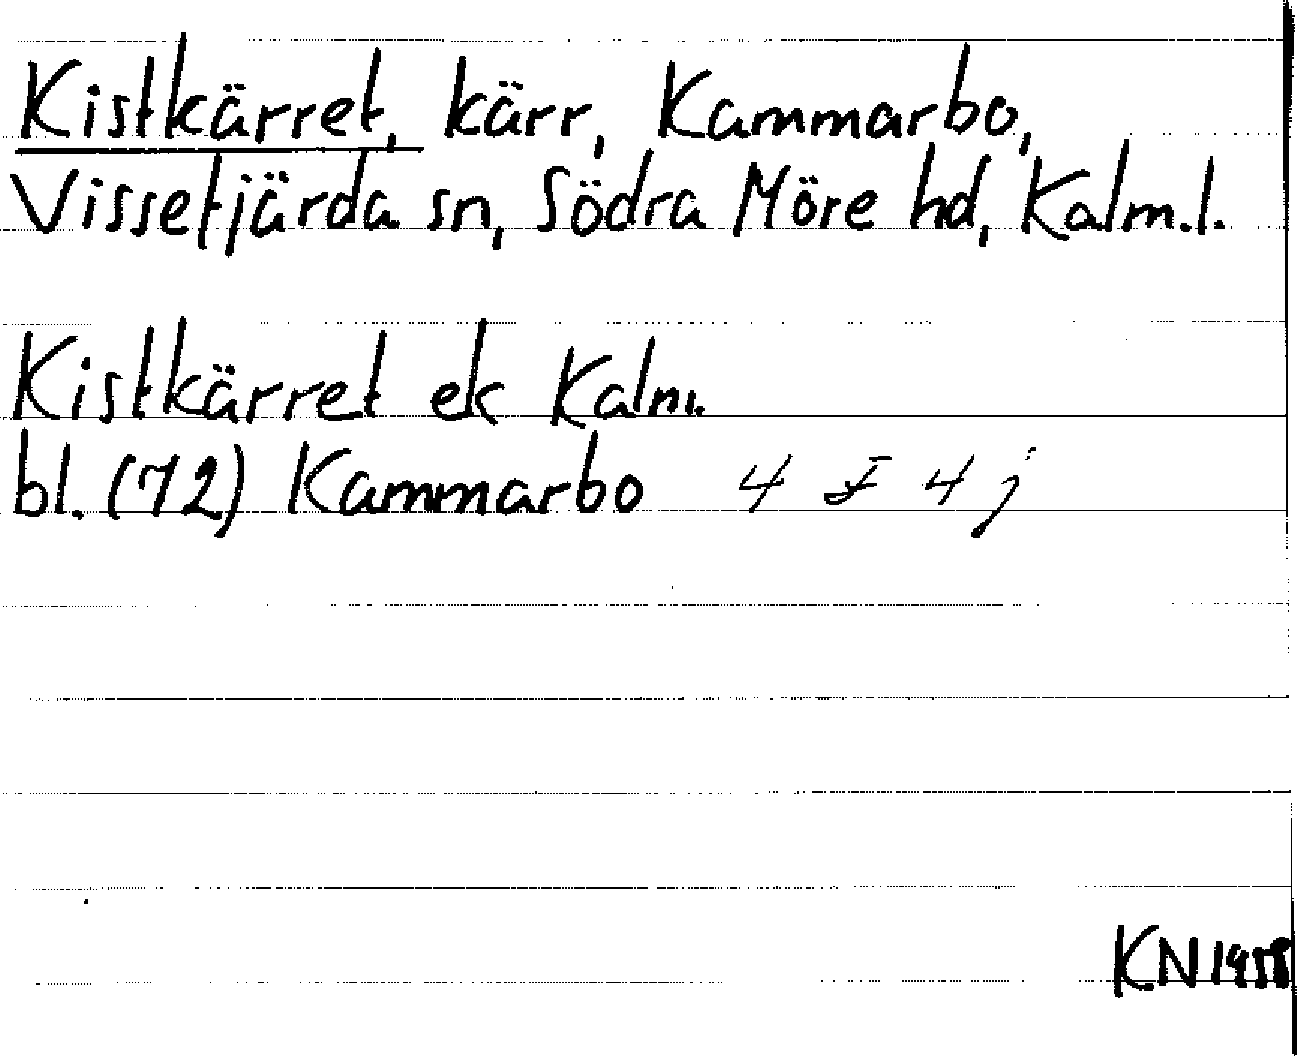 Kistkärret, kärr, Kammarbo,
Vissefjärda sn, Södra Möre hd, Kalm.l.
Kistkärret ek Kalm.
bl. (72) Kammarbo 4 F 4 j
KN